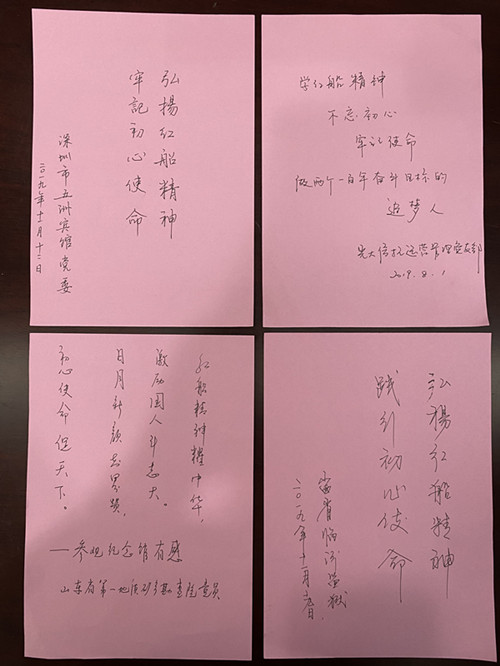 弘揚红船精神
牢記初心使命
深圳市五洲宾馆党委
二〇一九年十一月十二日
学红船精神
不忘初心
牢记使命
做两个一百年奋斗目标的
追梦人
光大信托运营管理党支部
2019.
红船精神耀中华，
激励国人斗志大。
日月新颜
初心使命促天下。
——参观纪念馆有感
山东省第一地质矿产勘查院党员
弘揚红船精神
践行初心使命
二〇一九年十一月